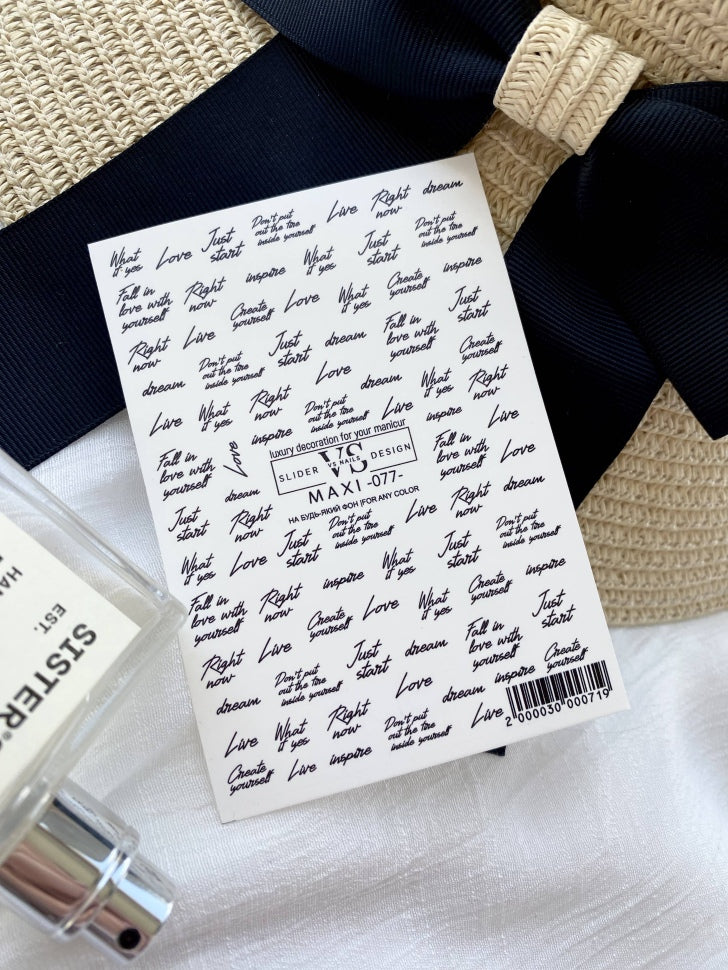 What
if yes
Love
Just
start
Don't put
out the fire
inside yourself
Live
Right
now
dream
Fall in
love with
yourself
Right
now
inspire
What
if yes
Just
start
Don't put
out the fire
inside yourself
Right
now
Live
Create
yourself
Love
What
if yes
Create
yourself
inspire
dream
Don't put
out the fire
inside yourself
Just
start
dream
Fall in
love with
yourself
Just
start
Live
What
if yes
Right
now
Love
dream
What
if yes
Create
yourself
Fall in
love with
yourself
Love
inspire
Don't put
out the fire
inside yourself
Live
inspire
Right
now
dream
luxury decoration for your manicur
SLIDER VS DESIGN
VS NAILS
MAXI -077-
НА БУДЬ-ЯКИЙ ФОН |FOR ANY COLOR
Fall in
love with
yourself
Live
Just
start
Right
now
Just
start
Don't put
out the fire
inside yourself
Live
Right
now
Love
What
if yes
Love
inspire
What
if yes
Just
start
dream
Don't put
out the fire
inside yourself
Fall in
love with
yourself
Right
now
Create
yourself
Love
What
if yes
Create
yourself
inspire
Right
now
Live
Just
start
dream
Fall in
love with
yourself
Just
start
dream
Don't put
out the fire
inside yourself
Love
dream
inspire
Create
yourself
Live
What
if yes
Right
now
Don't put
out the fire
inside yourself
Live
Create
yourself
Live
inspire
2 000030 000719
EST.
SISTER